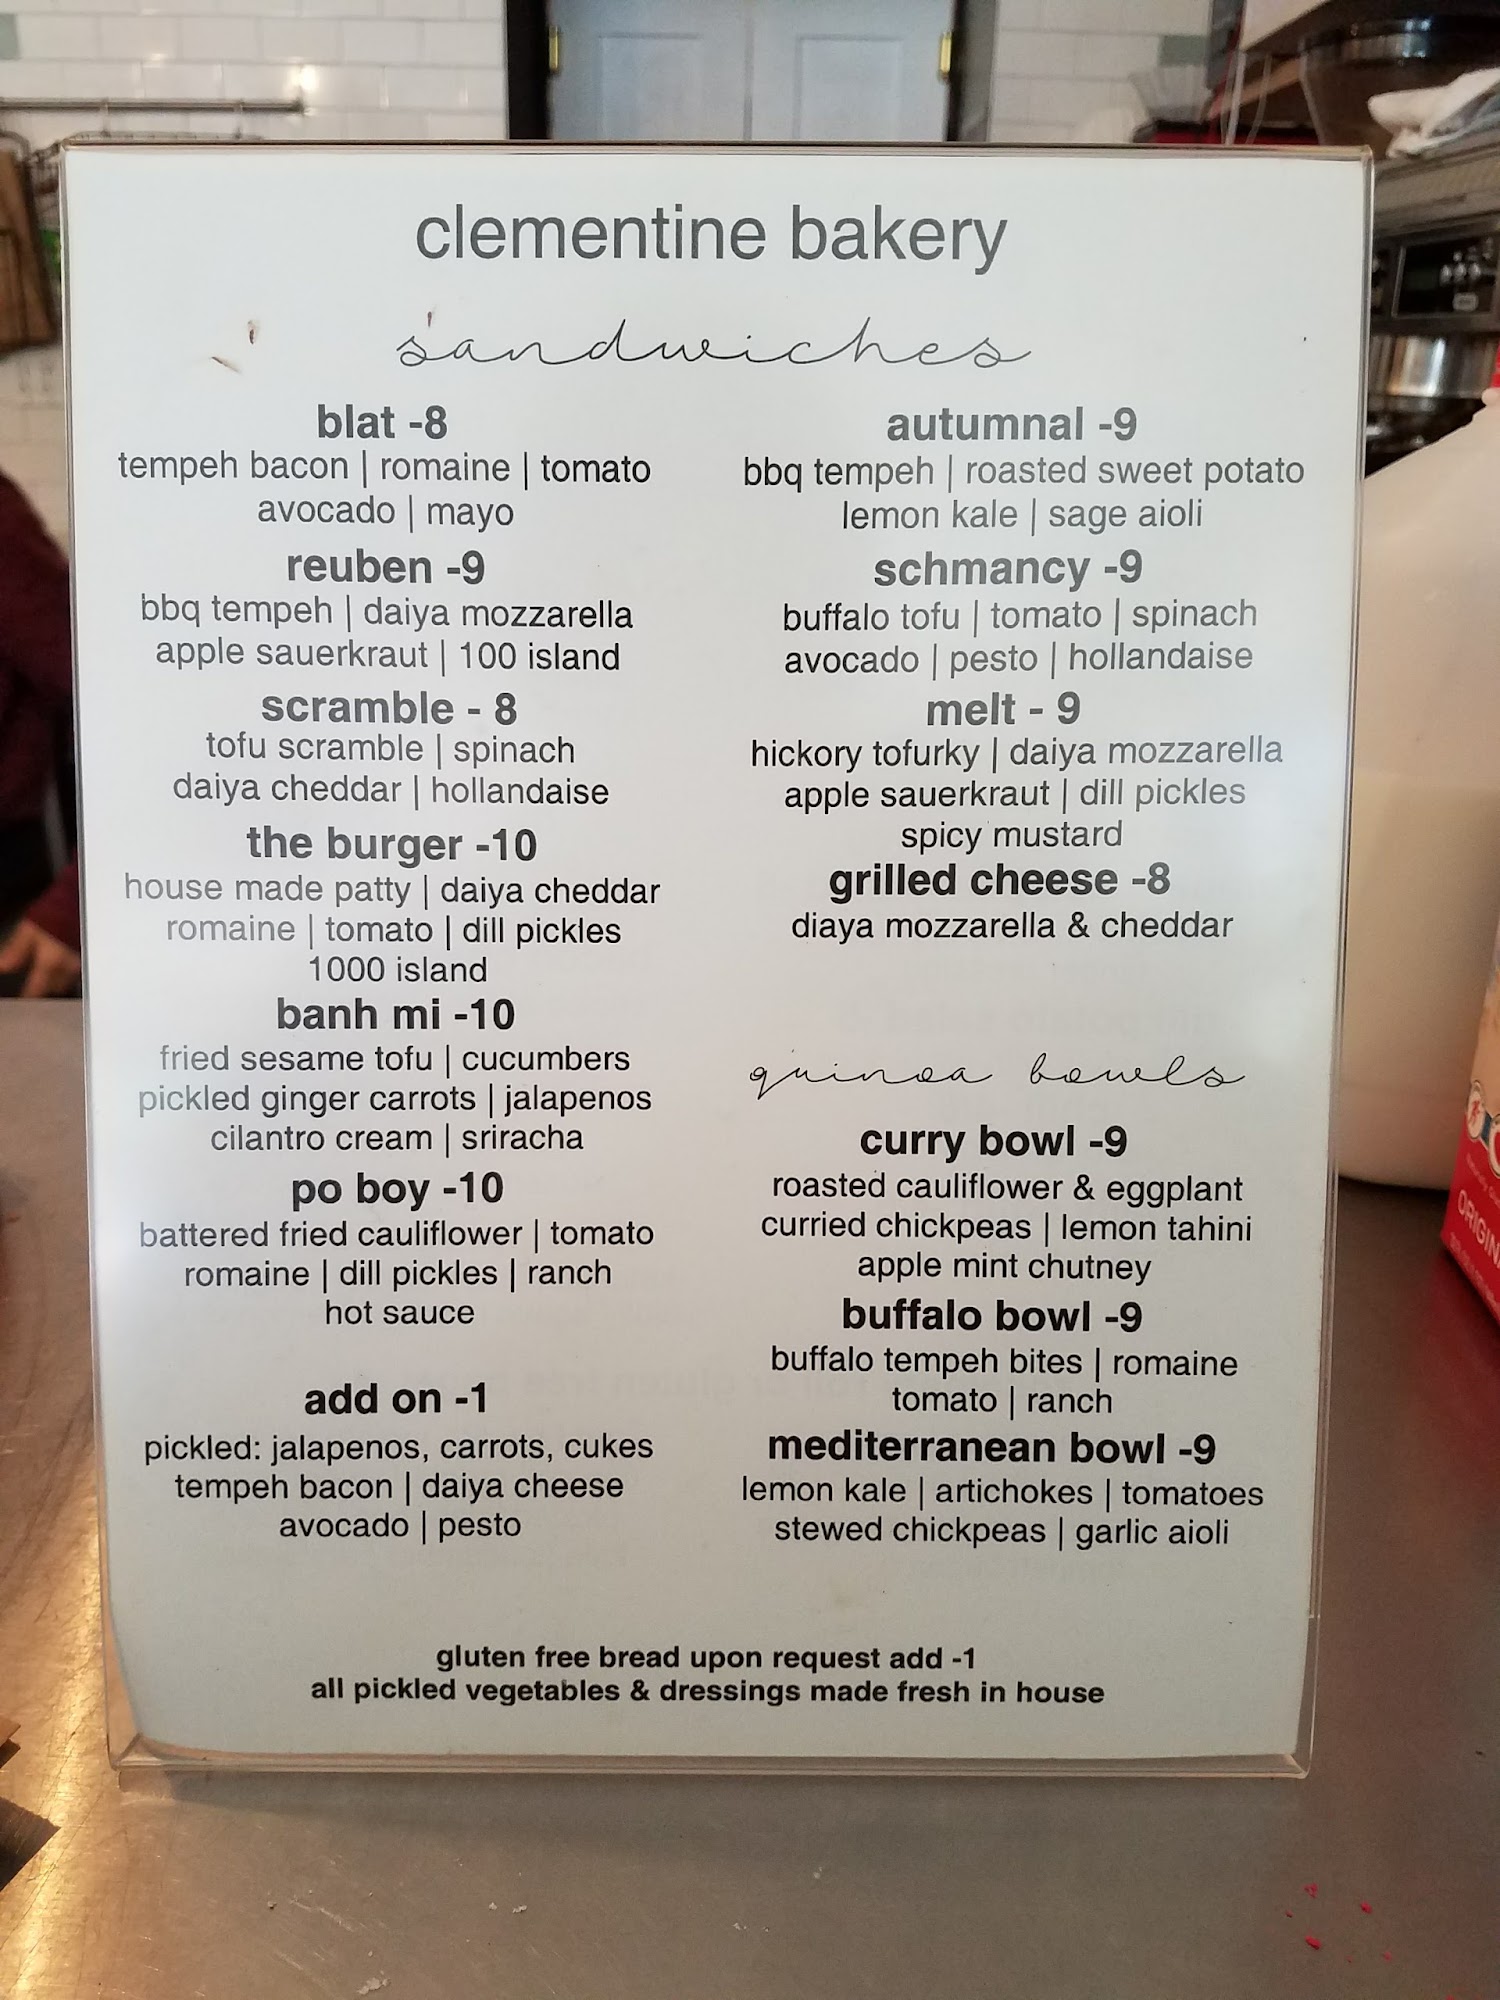 clementine bakery
sandwiches
blat -8
tempeh bacon | romaine | tomato
avocado | mayo
reuben -9
bbq tempeh | daiya mozzarella
apple sauerkraut | 100 island
scramble - 8
tofu scramble | spinach
daiya cheddar | hollandaise
the burger -10
house made patty | daiya cheddar
romaine | tomato | dill pickles
1000 island
banh mi -10
fried sesame tofu | cucumbers
pickled ginger carrots | jalapenos
cilantro cream | sriracha
po boy -10
battered fried cauliflower | tomato
romaine | dill pickles | ranch
hot sauce
add on -1
pickled: jalapenos, carrots, cukes
tempeh bacon | daiya cheese
avocado | pesto
autumnal -9
bbq tempeh | roasted sweet potato
lemon kale | sage aioli
schmancy -9
buffalo tofu | tomato | spinach
avocado | pesto | hollandaise
melt - 9
hickory tofurky | daiya mozzarella
apple sauerkraut | dill pickles
spicy mustard
grilled cheese -8
diaya mozzarella & cheddar
quinoa bowls
curry bowl -9
roasted cauliflower & eggplant
curried chickpeas | lemon tahini
apple mint chutney
buffalo bowl -9
buffalo tempeh bites | romaine
tomato | ranch
mediterranean bowl -9
lemon kale | artichokes | tomatoes
stewed chickpeas | garlic aioli
gluten free bread upon request add -1
all pickled vegetables & dressings made fresh in house